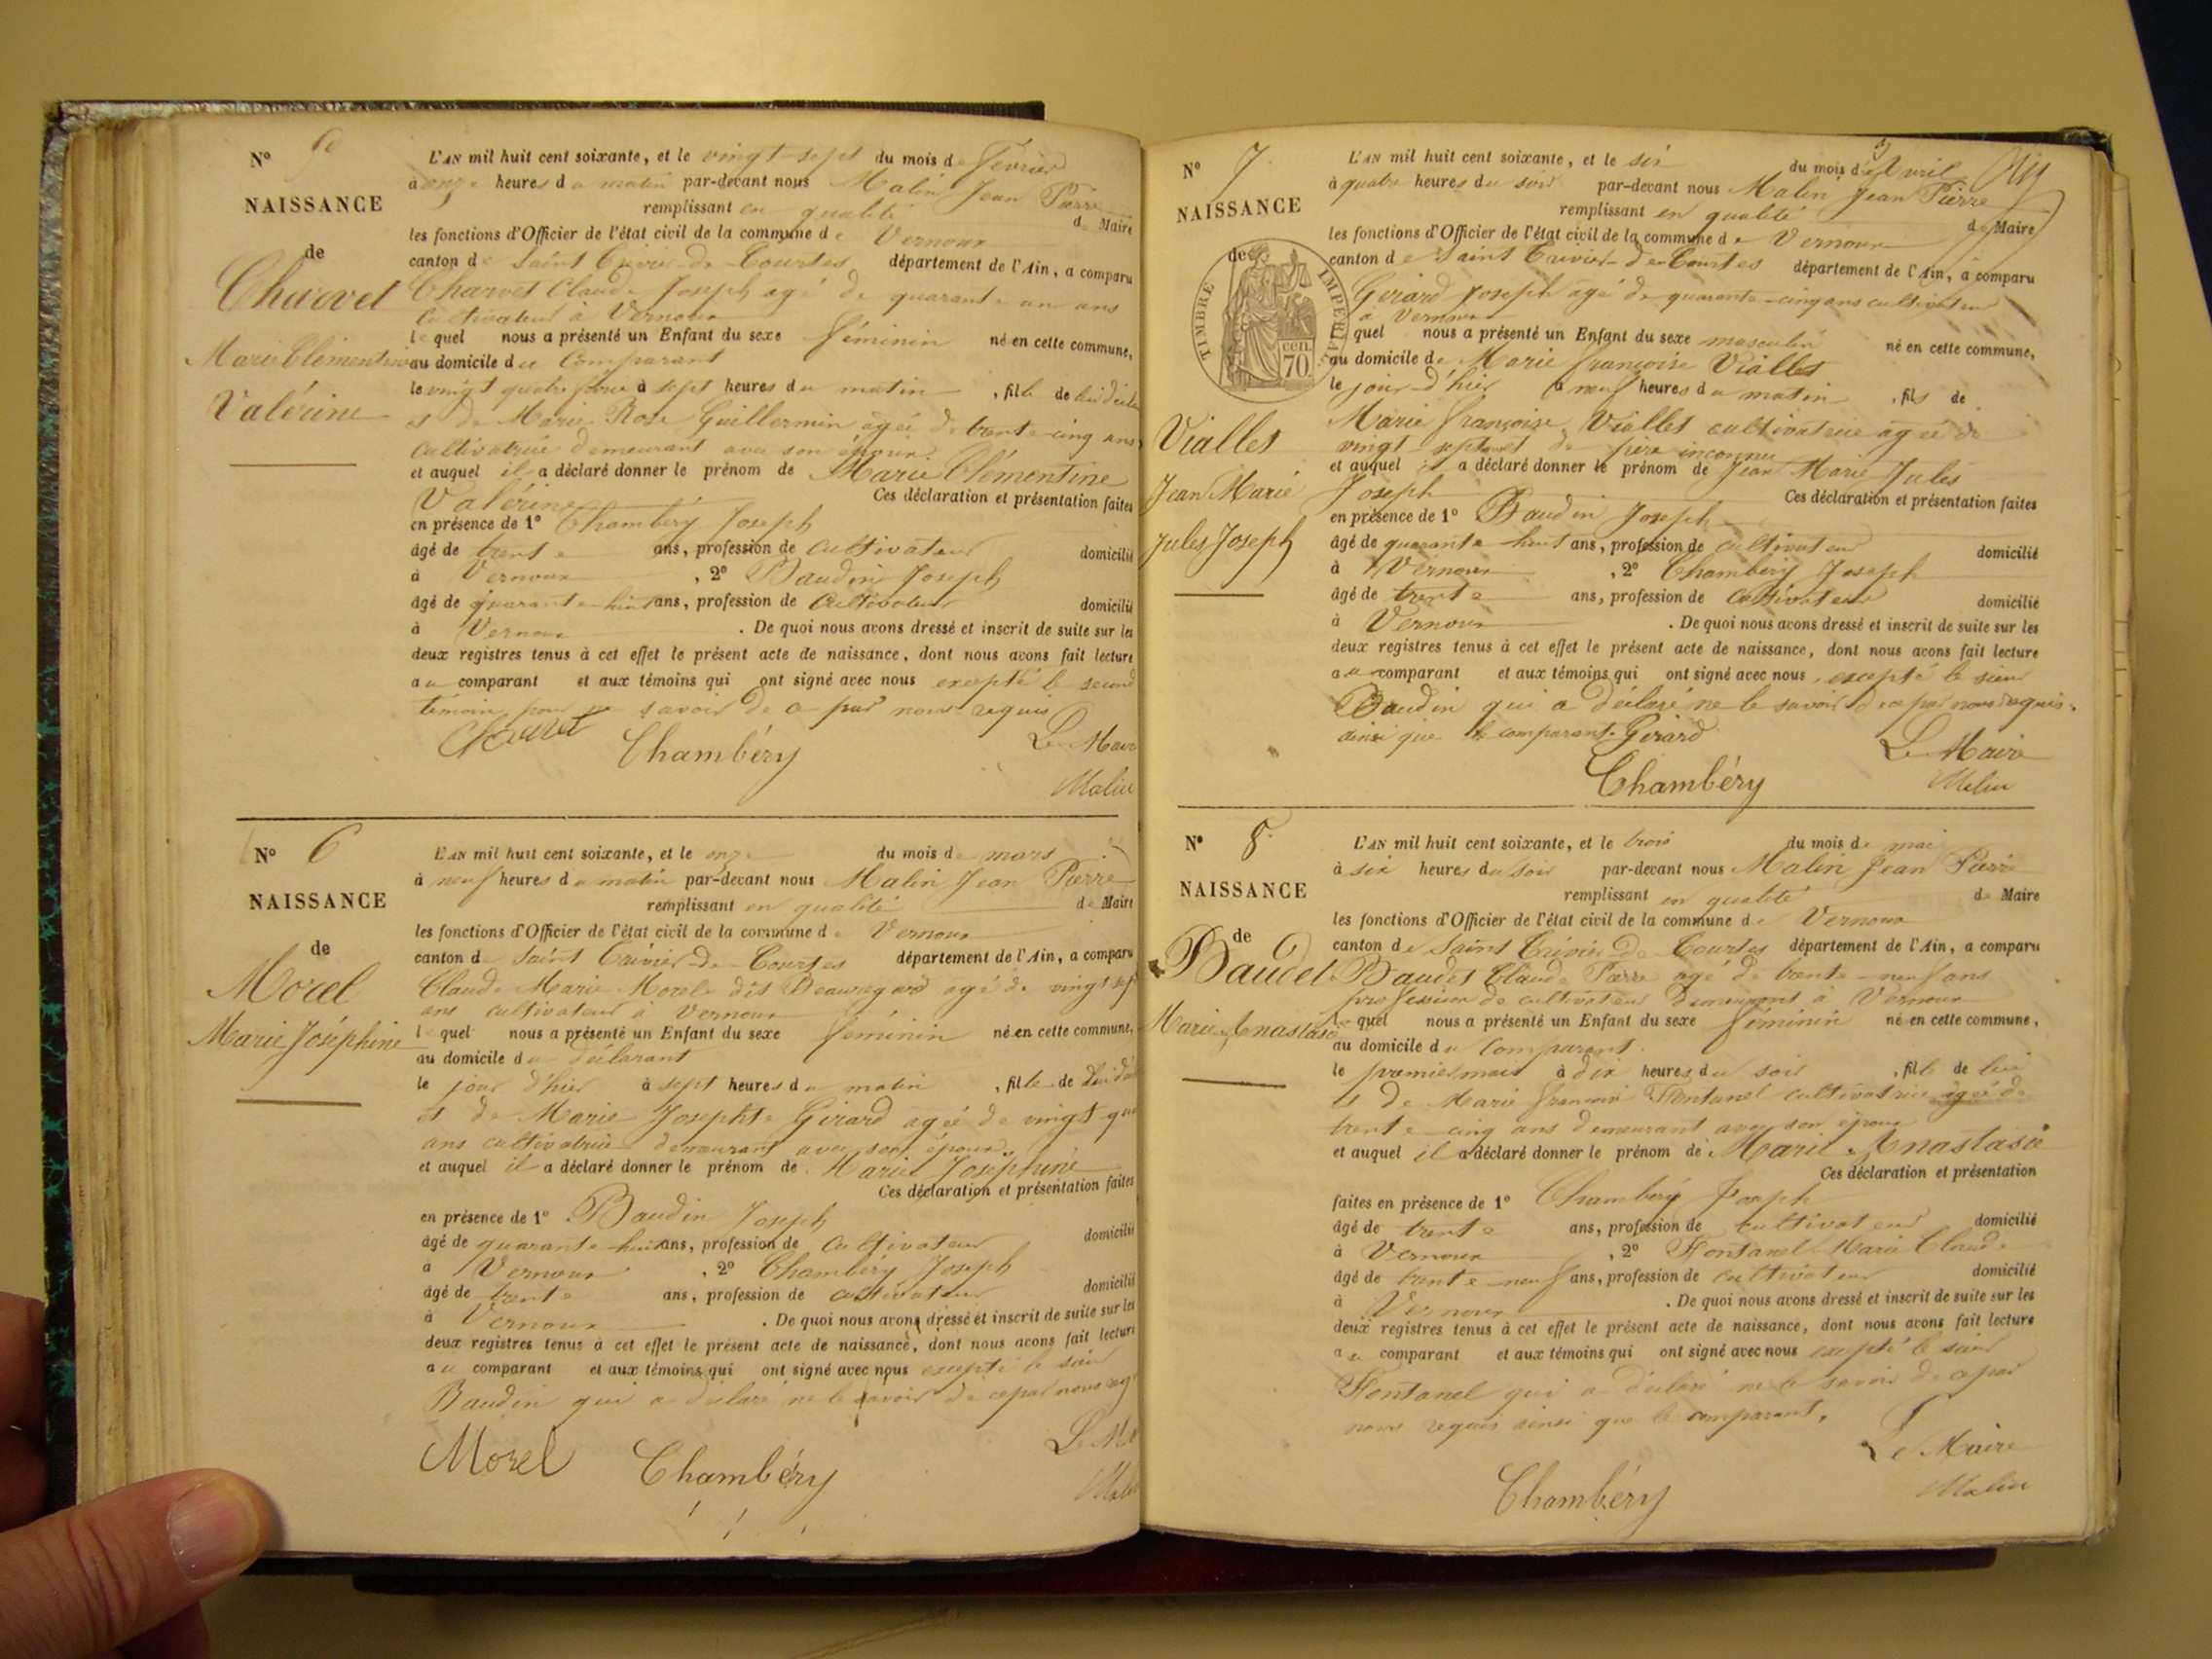 N°
NAISSANCE
de
Charvet
Marie Clémentine
Valérine
L'AN mil huit cent soixante, et le vingt-sept du mois de février
à onze heures du matin par-devant nous Malin Jean Pierre
remplissant en qualité de Maire
les fonctions d'Officier de l'état civil de la commune de Vernoux
canton de Saint Trivier-de-Courtes département de l'Ain, a comparu
Charvet Claude Joseph agé de quarante un ans
cultivateur à Vernoux
lequel nous a présenté un Enfant du sexe féminin né en cette commune,
au domicile du comparant
le vingt quatre à sept heures du matin, fille de lui
et de Marie Rose Guillermin agée de trente-cinq ans
cultivatrice demeurant avec son époux
et auquel il a déclaré donner le prénom de Marie Clémentine
Valérine Ces déclaration et présentation faites
en présence de 1° Chambéry Joseph
âgé de trente ans, profession de cultivateur domicilié
à Vernoux, 2° Baudin Joseph
âgé de quarante-huit ans, profession de cultivateur domicilié
à Vernoux. De quoi nous avons dressé et inscrit de suite sur les
deux registres tenus à cet effet le présent acte de naissance, dont nous avons fait lecture
au comparant et aux témoins qui ont signé avec nous excepté le second
témoin pour ne savoir de ce par nous requis
Charvet Chambéry Le Maire
Malin
N° 6
NAISSANCE
de
Morel
Marie Joséphine
L'AN mil huit cent soixante, et le onze du mois de mars
à neuf heures du matin par-devant nous Malin Jean Pierre
remplissant en qualité de Maire
les fonctions d'Officier de l'état civil de la commune de Vernoux
canton de Saint Trivier-de-Courtes département de l'Ain, a comparu
Claude Marie Morel dit Beauregard agé de vingt sept
ans cultivateur à Vernoux
lequel nous a présenté un Enfant du sexe féminin né en cette commune,
au domicile du déclarant
le jour d'hier à sept heures du matin, fille de lui
et de Marie Josephte Girard agée de vingt
ans cultivatrice demeurant avec son époux
et auquel il a déclaré donner le prénom de Marie Joséphine
Ces déclaration et présentation faites
en présence de 1° Baudin Joseph
âgé de quarante-huit ans, profession de cultivateur domicilié
à Vernoux, 2° Chambéry Joseph
âgé de trente ans, profession de cultivateur domicilié
à Vernoux. De quoi nous avons dressé et inscrit de suite sur les
deux registres tenus à cet effet le présent acte de naissance, dont nous avons fait lecture
au comparant et aux témoins qui ont signé avec nous excepté le sieur
Baudin qui a déclaré ne le savoir de ce par nous
Morel Chambéry Le M
N° 7
NAISSANCE
de
TIMBRE IMPERIAL
70 cen.
Vialles
Jean Marie
Jules Joseph
L'AN mil huit cent soixante, et le six du mois d'Avril
à quatre heures du soir par-devant nous Malin Jean Pierre
remplissant en qualité de Maire
les fonctions d'Officier de l'état civil de la commune de Vernoux
canton de Saint Trivier-de-Courtes département de l'Ain, a comparu
Girard Joseph agé de quarante-cinq ans cultivateur
à Vernoux
lequel nous a présenté un Enfant du sexe masculin né en cette commune,
au domicile de Marie françoise Vialles
le jour d'hier à neuf heures du matin, fils de
Marie françoise Vialles cultivatrice agée de
vingt sept et de père inconnu
et auquel il a déclaré donner le prénom de Jean Marie Jules
Joseph Ces déclaration et présentation faites
en présence de 1° Baudin Joseph
âgé de quarante-huit ans, profession de cultivateur domicilié
à Vernoux, 2° Chambéry Joseph
âgé de trente ans, profession de cultivateur domicilié
à Vernoux. De quoi nous avons dressé et inscrit de suite sur les
deux registres tenus à cet effet le présent acte de naissance, dont nous avons fait lecture
au comparant et aux témoins qui ont signé avec nous, excepté le sieur
Baudin qui a déclaré ne le savoir de ce par nous requis
ainsi que le comparant Girard
Chambéry Le Maire
Malin
N° 8
NAISSANCE
de
Baudet
Marie Anastasie
L'AN mil huit cent soixante, et le trois du mois de mai
à six heures du soir par-devant nous Malin Jean Pierre
remplissant en qualité de Maire
les fonctions d'Officier de l'état civil de la commune de Vernoux
canton de Saint Trivier de Courtes département de l'Ain, a comparu
Baudet Claude Pierre agé de trente-neuf ans
profession de cultivateur demeurant à Vernoux
lequel nous a présenté un Enfant du sexe féminin né en cette commune,
au domicile du comparant
le premier mai à dix heures du soir, fille de lui
et de Marie Fontanel cultivatrice agée de
trente-cinq ans demeurant avec son époux
et auquel il a déclaré donner le prénom de Marie Anastasie
Ces déclaration et présentation
faites en présence de 1° Chambéry Joseph
âgé de trente ans, profession de cultivateur domicilié
à Vernoux, 2° Fontanel Marie Claude
âgé de trente-neuf ans, profession de cultivateur domicilié
à Vernoux. De quoi nous avons dressé et inscrit de suite sur les
deux registres tenus à cet effet le présent acte de naissance, dont nous avons fait lecture
au comparant et aux témoins qui ont signé avec nous excepté le sieur
Fontanel qui a déclaré ne le savoir de ce par
nous requis ainsi que le comparant.
Le Maire
Chambéry Malin